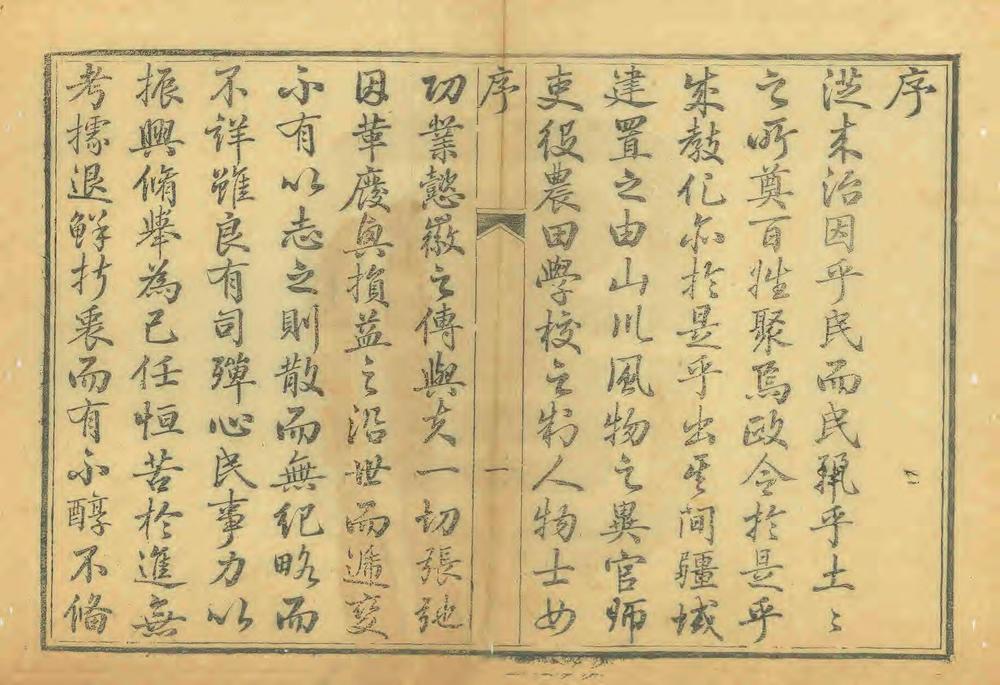 序
從来治因乎民而民乎土〻
之所奠百姓聚焉政令於是乎
成教化亦於是乎出其间疆域
建置之由山川風物之異官師
吏役農田學校之制人物士女
序 一
功業懿徽之傳與夫一切張弛
因革廢興損益之沿世而遞变
不有以志之則散而無紀略而
不詳雖良有司殫心民事力以
振興脩舉為己任恒苦於進無
考據退鮮折衷而有不醇不備